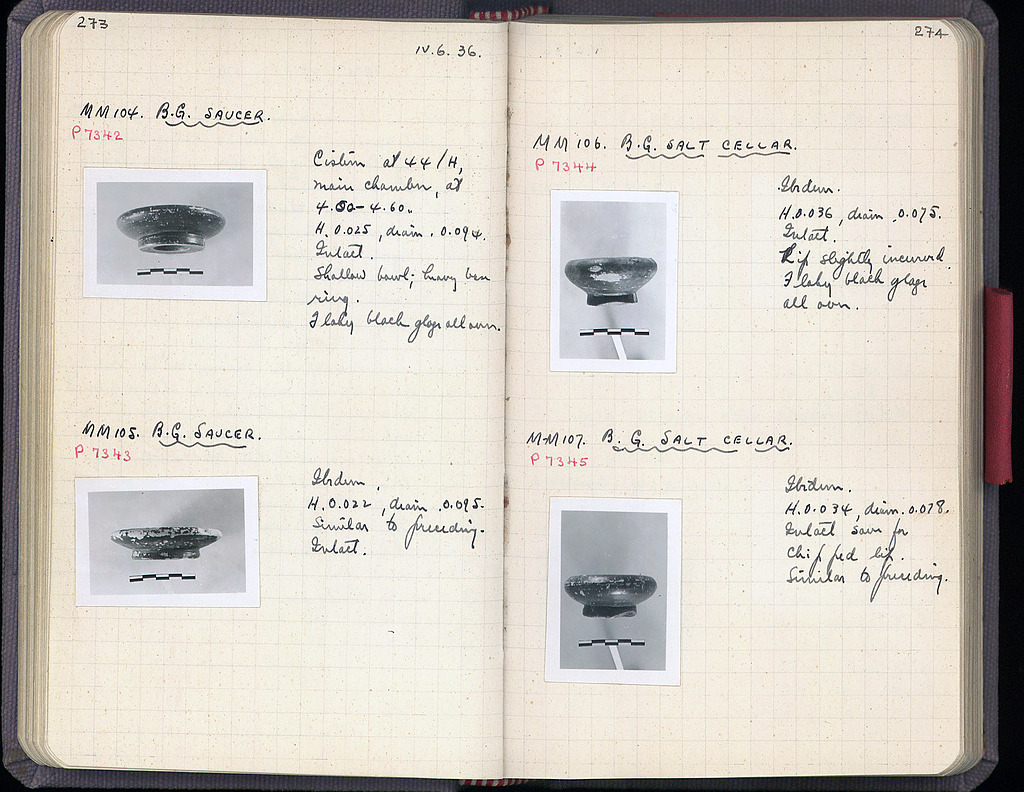 273
IV.6.36.
MM104. B.G. SAUCER.
P 7342
Cistern at 44/H,
main chamber, at
4.50-4.60.
H. 0.025, diam. 0.094.
Intact.
Shallow bowl; heavy base
ring.
Flaky black glaze all over.
MM105. B.G. SAUCER.
P 7343
Ibidem.
H. 0.022, diam. 0.095.
Similar to preceding.
Intact.
274
MM106. B.G. SALT CELLAR.
P 7344
Ibidem.
H. 0.036, diam. 0.075.
Intact.
Lip slightly incurved.
Flaky black glaze
all over.
MM107. B.G. SALT CELLAR.
P 7345
Ibidem.
H. 0.034, diam. 0.078.
Intact save for
chipped lip.
Similar to preceding.